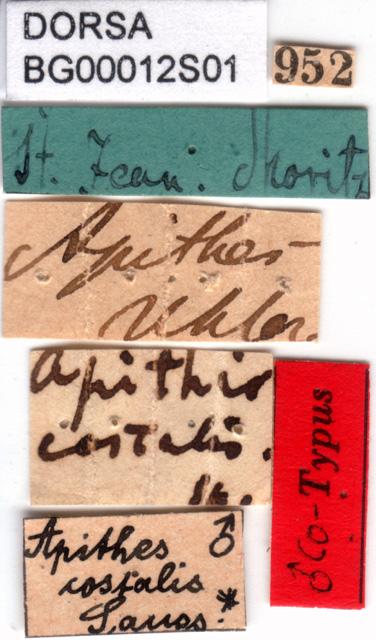 DORSA
BG00012S01
952
St. Jean. Moritz
Apithes
Uhler.
Apithis
costalis.
♂ Co-Typus
Apithes ♂
costalis
Sauss. *